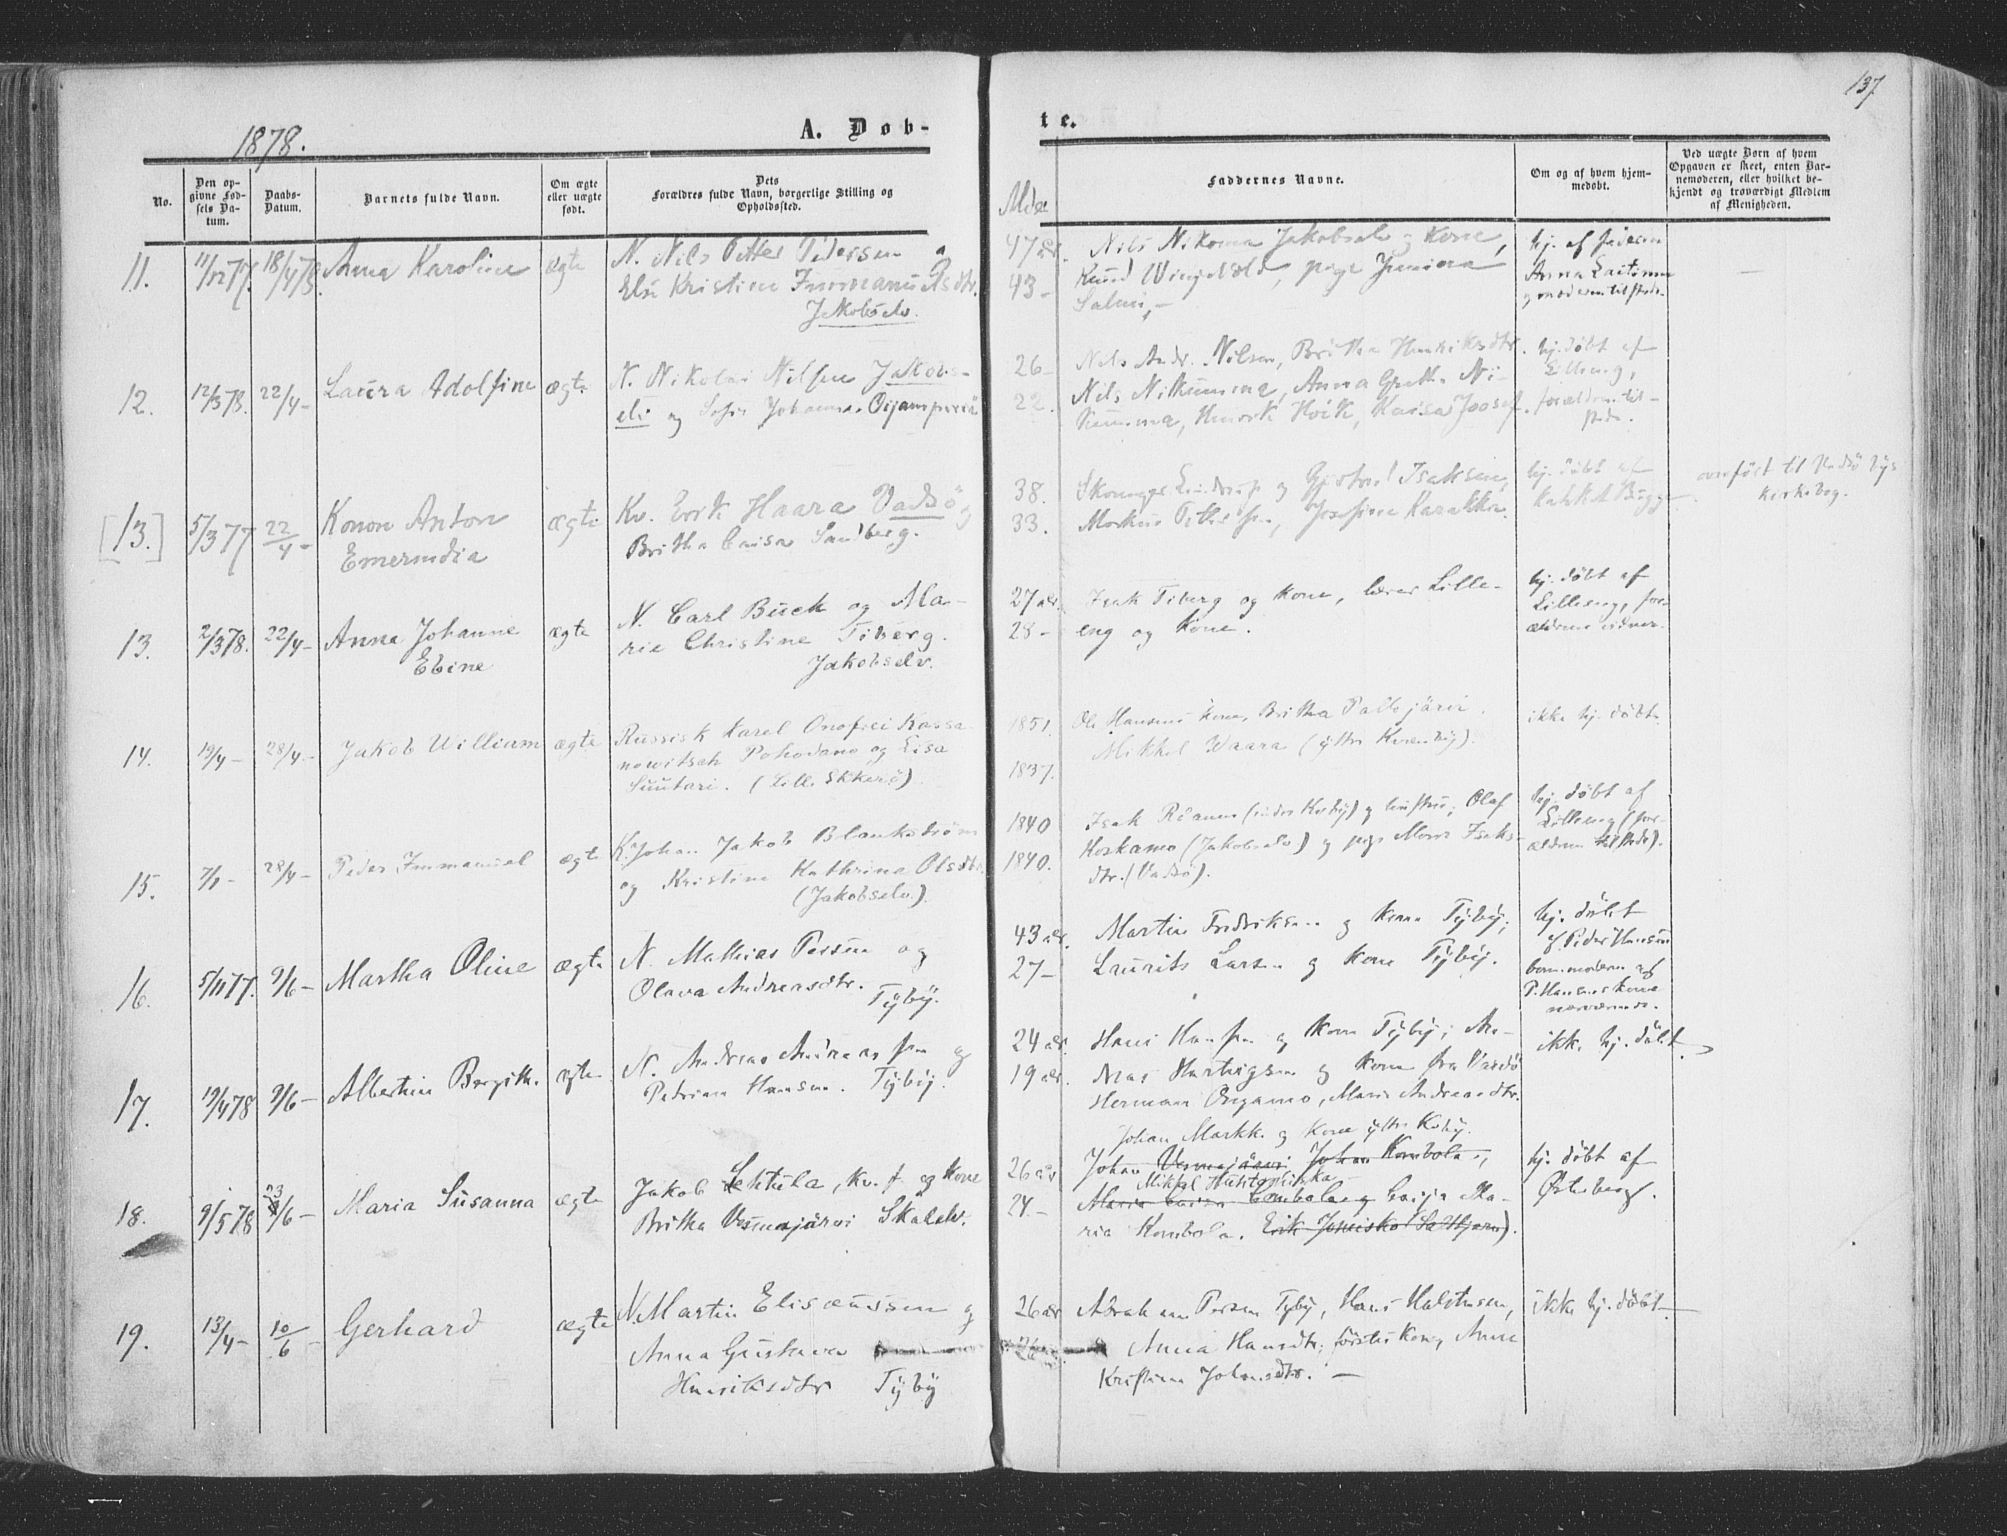 137
1878.
A. Døb-
te.
No.
Den op-
givne Fød-
sels Da-
tum.
Daabs-
Datum.
Barnets fulde Navn.
Om ægte
eller uægte
født.
Dets
Forældres fulde Navn, borgerlige Stilling og
Opholdssted.
Faddernes Navne.
Om og af hvem hjem-
medøbt.
Ved uægte Børn af hvem
Opgaven er skeet, enten Bar-
nemoderen, eller hvilket be-
kjendt og troværdigt Medlem
af Menigheden.
11.
11/12 77.
18/4 78.
Anna Karoline
ægte
N. Nils Petter Pedersen
Else Kristine Immanuelsdtr.
Jakobselv.
47 år.
43 -
Nils Jakobselv og Kone,
Knud pige
Salmi, -
hj. af
Anna
12.
12/3 78.
22/4 -
Laura Adolfine
ægte
N. Nikolai Nilsen Jakobs-
elv og Sofie Johanna
26 -
22.
Nils Andr. Nilsen, Britha Henriksdtr.
Nils Nikumma, Anna Greth. Ni-
kumma, Henrik Kaisa Josef.
hj. døbt af
Lilleeng,
forældrene til-
stede.
[13.]
5/3 77
22/4 -
Konon Anton
ægte
Kv. Erik Haara Vadsö og
Britha Caisa Sandberg.
38.
33.
og Gjertrud Isaksen,
Markus Josefine Karakka.
hj. døbt af
overført til Vadsö bys
kirkebog.
13.
2/3 78.
22/4 -
Anna Johanne
Ebine
ægte
N. Carl Buck og Ma-
rie Christine Tiberg.
Jakobselv.
27 år.
28 -
Isak Tiberg og Kone, lærer Lille-
eng og Kone.
hj. døbt af
Lilleeng, for-
ældrene vidner.
14.
19/4 -
28/4 -
Jakob William
ægte
Russisk Karel Onofrei Kassa
nowitsch Pohodano og Lisa
Suutari. (Lille Ekkerø)
1851.
1837.
Ole Hansens kone, Britha Pallojärvi.
Mikkel Waara (ytter Kvænby).
ikke hj. døbt.
15.
28/4 -
Peder Immanuel
ægte
K. Johan Jakob Blankström
og Kristine Kathrina Olsdtr.
(Jakobselv.)
1840
1840.
Isak og hustru; Olaf
Horkamo (Jakobselv) og pige Maria Isaks-
dtr. (Vadsö).
hj. døbt af
Lilleeng (for-
ældrene tilstede).
16.
5/11 77.
9/6 -
Martha Oline
ægte
N. Mathias Persen og
Olava Andreasdtr.
Tÿbÿ.
43 år.
27 -
Martin Fredriksen og Kone Tÿbÿ;
Laurits Larsen og Kone Tÿbÿ.
hj. døbt
af Peder Hansen
barnemoderen og
P. Hansens Kone
nærværende.
17.
19/4 78
9/6 -
Albertine Bergith.
ægte
N. Andreas Andreassen og
Pedrine Hansen. Tÿbÿ.
24 år.
19 år.
Hans Hansen og Kone Tÿbÿ; An-
dreas Hartvigsen og Kone fra Vardö
Herman Ongamo, Marie Andreasdtr.
ikke hj. døbt.
18.
9/5 78
23/6 -
Maria Susanna
ægte
Jakob Lehtula, kv. f. og Kone
Britha Vesmajärvi Skalelv.
26 år
24. -
Johan Markk. og Kone ytter Kvby.
Johan Vesmajärvi Johan Kombola,
Mikkel
Maria Caisa Kombola og Caisa Ma-
ria Kombola. Erik
hj. døbt af
Østerberg.
19.
13/4 -
10/6 -
Gerhard
ægte
N. Martin Elisæussen og
Anna Gustava
Henriksdtr Tÿbÿ
26 år
26
Abraham Persen Tÿbÿ, Hans Halstensen,
Anna Hansdtr, førstes Kone, Anne
Kristine Johansdtr. -
ikke hj. døbt.